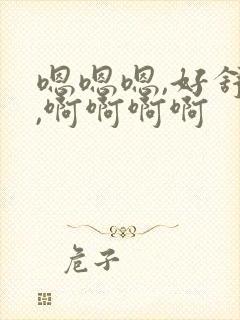 嗯嗯嗯,好舒
,啊啊啊啊
危子